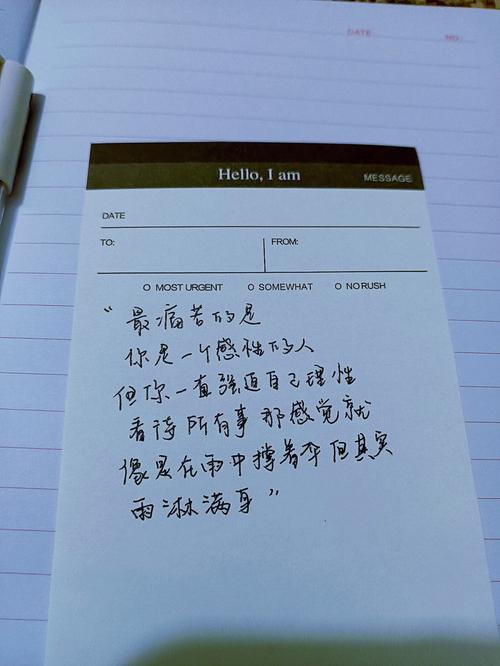 DATE NO:
Hello, I am MESSAGE
DATE
TO: FROM:
O MOST URGENT O SOMEWHAT O NO RUSH
“最痛苦的是
你是一个感性的人
但你一直强迫自己理性
看待所有事那感觉就
像是在雨中撑着伞但其实
雨淋满身”